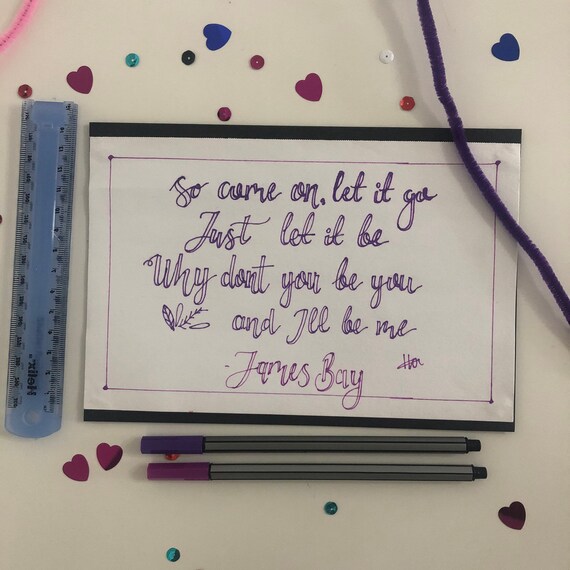 So come on, let it go
Just let it be
Why dont you be you
and I'll be me
- James Bay
Helix